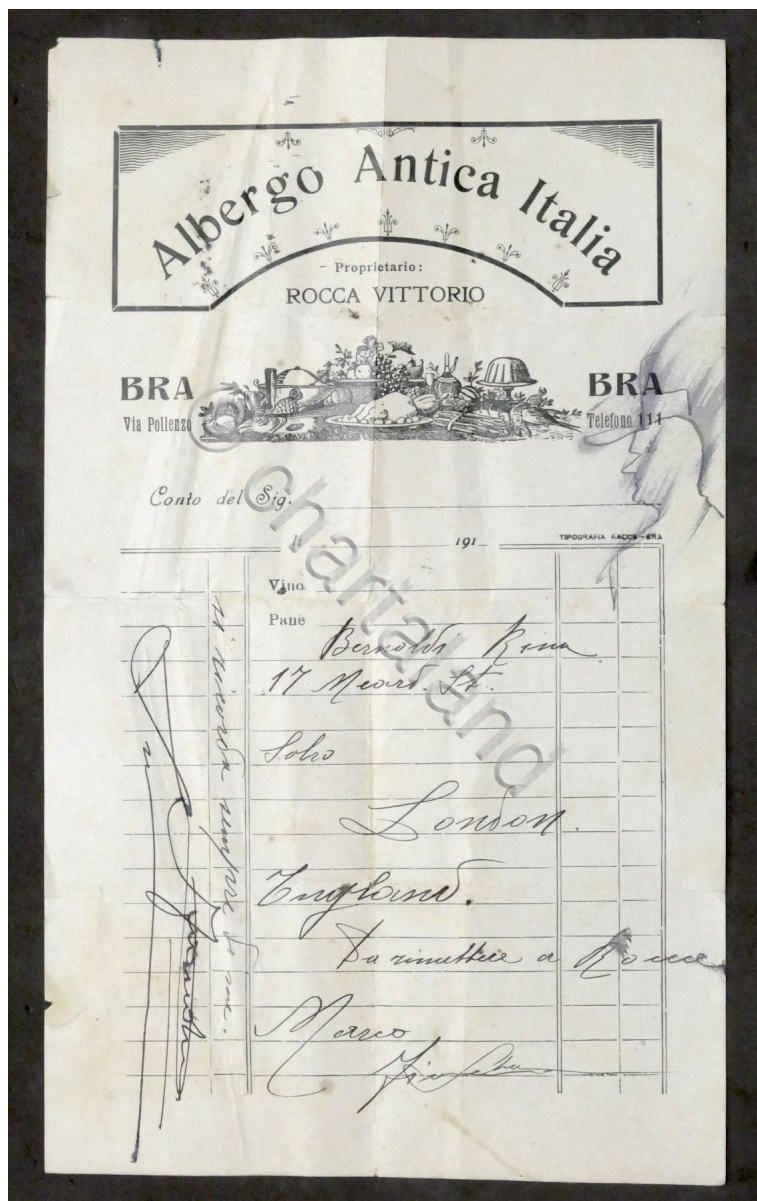 Albergo Antica Italia
- Proprietario:
ROCCA VITTORIO
BRA
Via Pollenzo
BRA
Telefono 111
Conto del Sig.
li 191
TIPOGRAFIA RACCA - BRA
Vino
Pane
Bernoldi Rina
17 Meard. St.
Soho
London.
England.
Da rimettere a Rocca
Marco
si ricorda sempre di me.
© chartaland